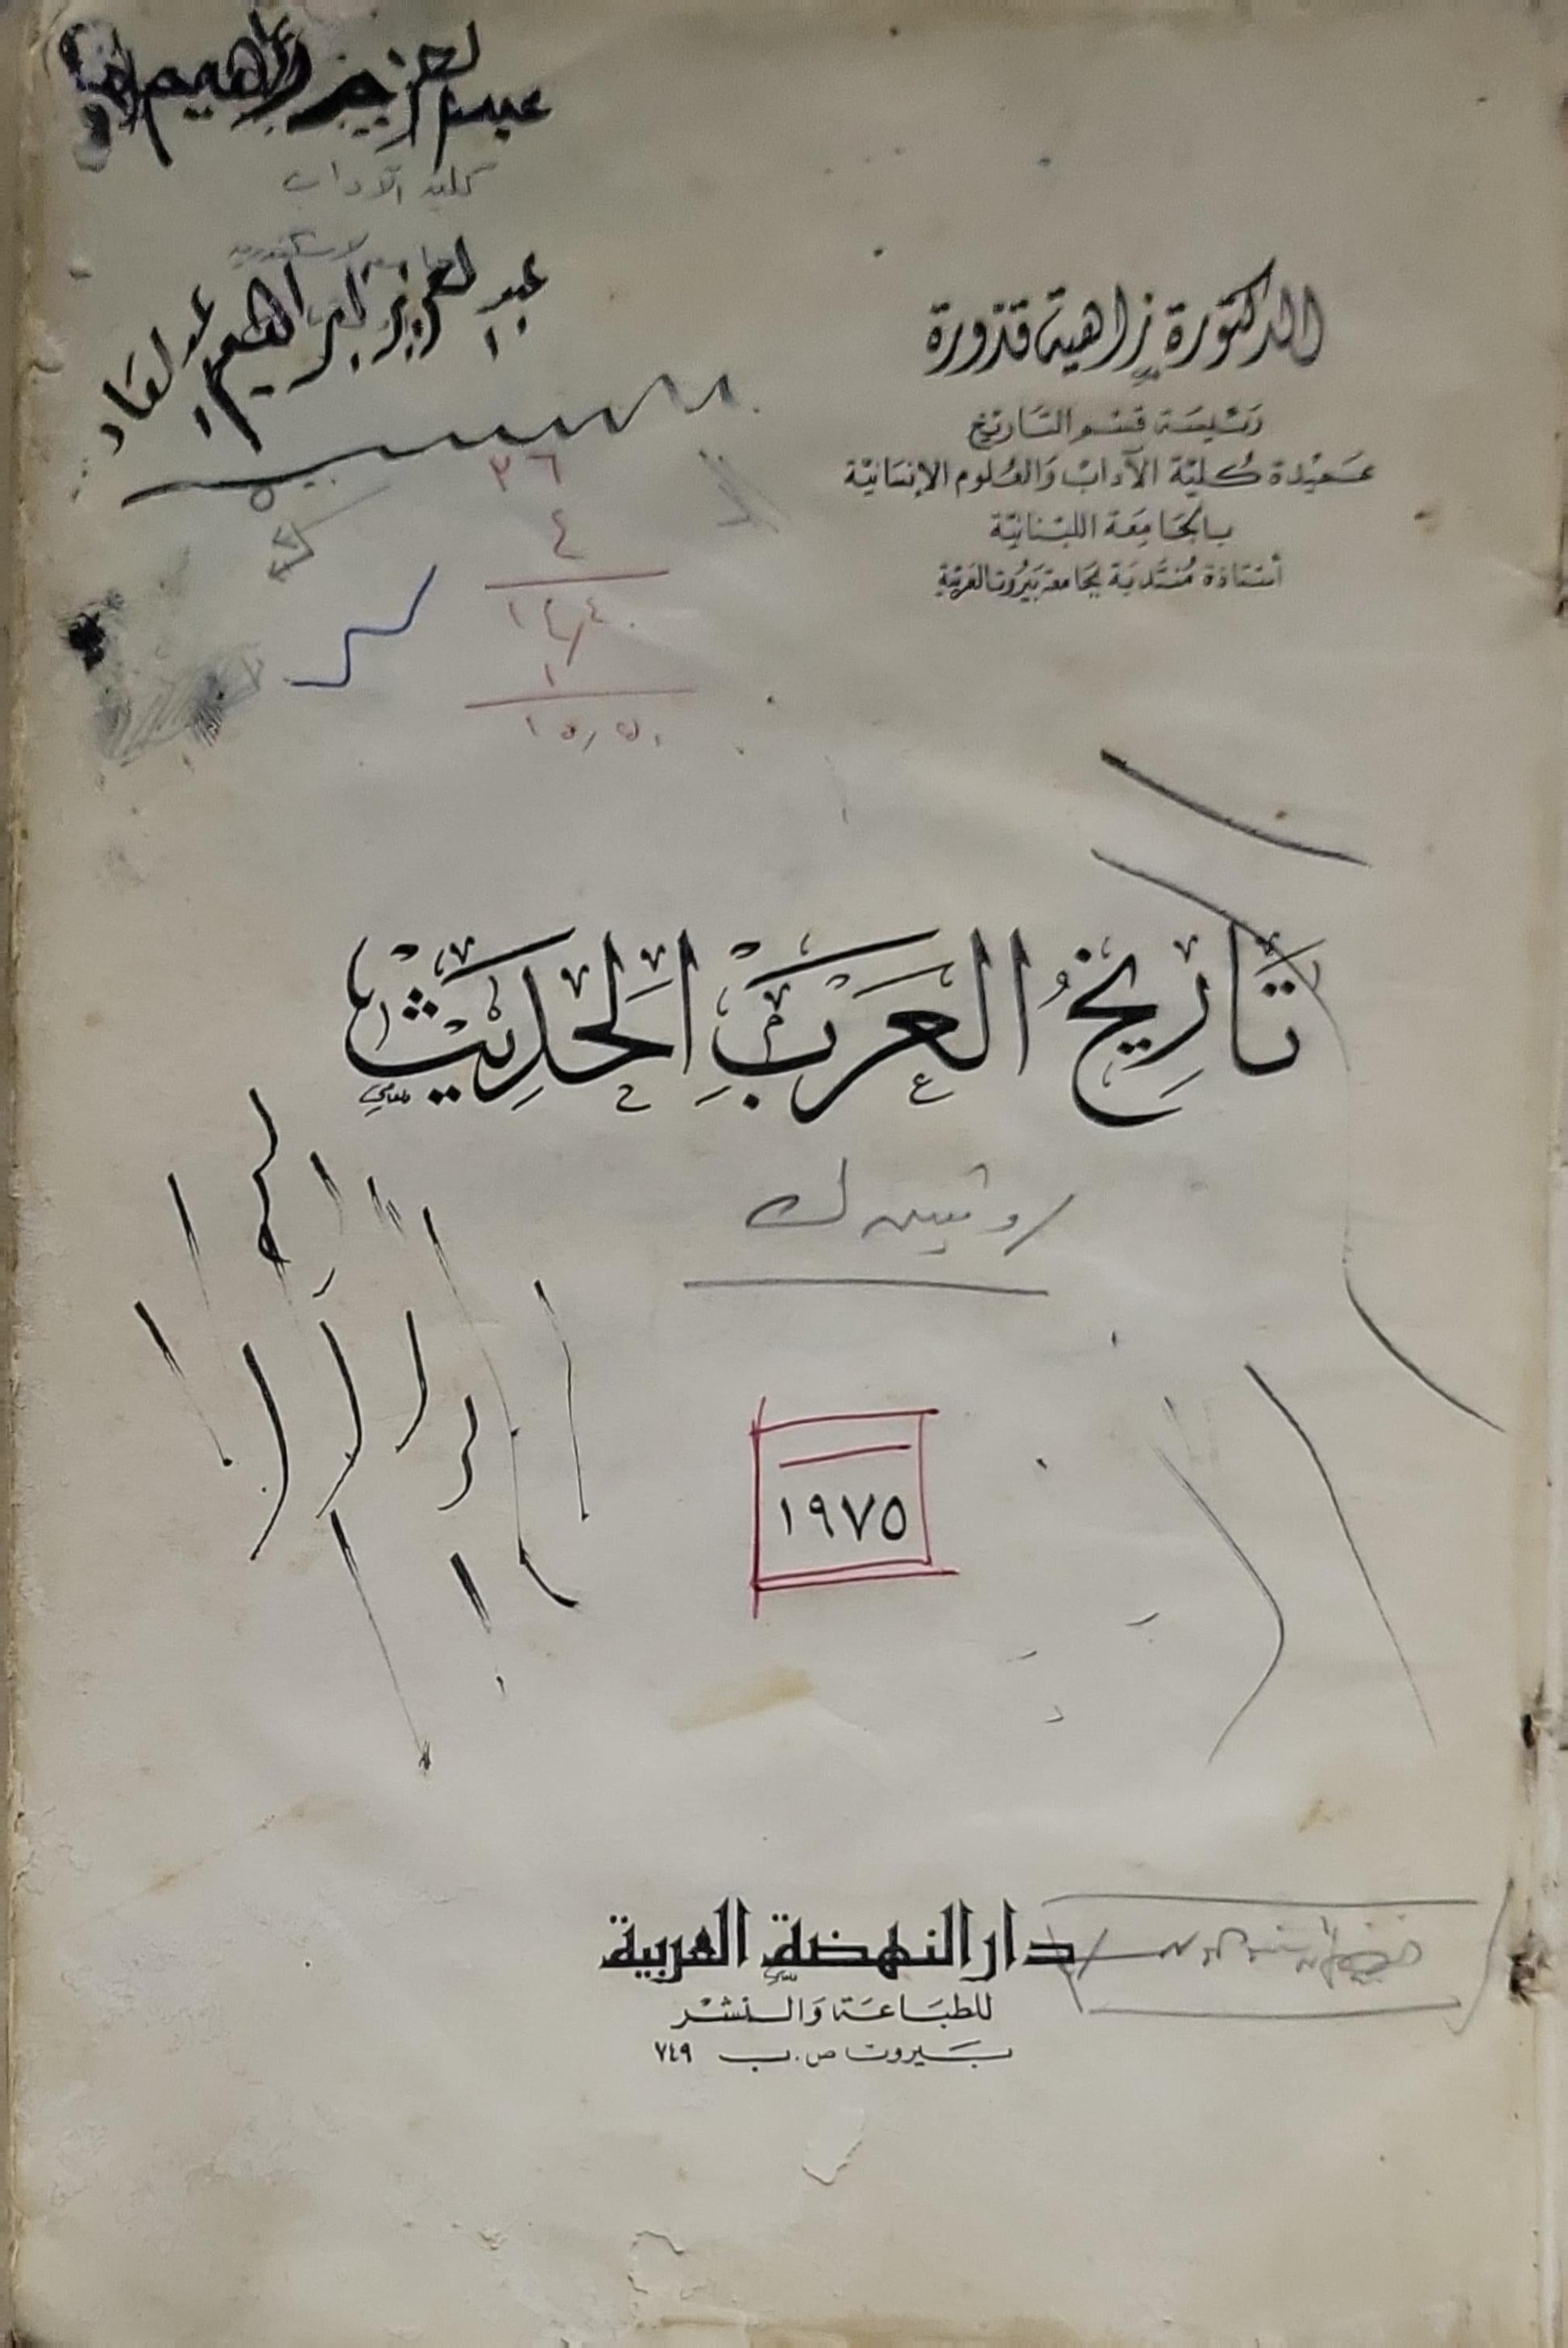 عبد العزيز ابراهيم
كلية الآداب
عبد العزيز ابراهيم
الدكتورة زاهية قدورة
رئيسة قسم التاريخ
عميدة كلية الآداب والعلوم الإنسانية
بالجامعة اللبنانية
أستاذة منتدبة بجامعة بيروت العربية
٣٦
٤
تاريخ العرب الحديث
١٩٧٥
دار النهضة العربية
للطباعة والنشر
بيروت ص.ب ٧٤٩